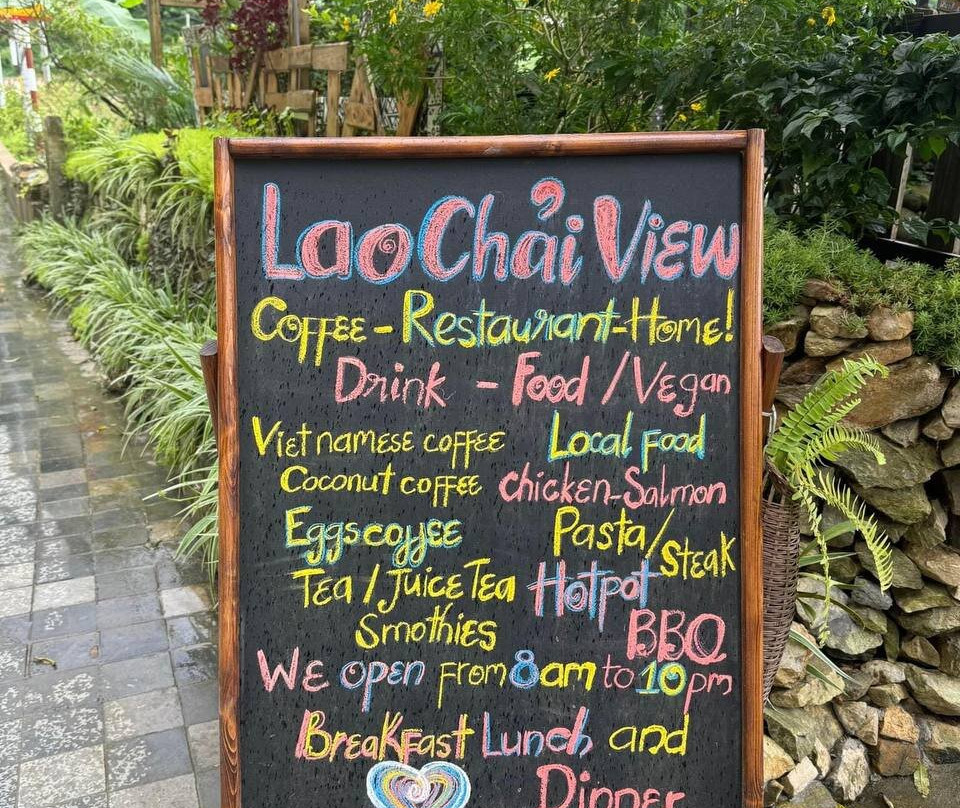 Lao Chải View
Coffee - Restaurant - Home!
Drink - Food / Vegan
Vietnamese coffee Local Food
Coconut coffee chicken - Salmon
Eggs coyyee Pasta / steak
Tea / Juice Tea Hotpot
Smothies BBQ
We open from 8am to 10pm
Breakfast Lunch and
Dinner